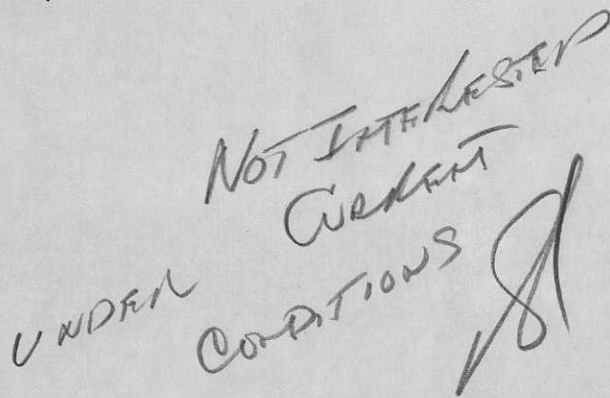 NOT INTERESTED
UNDER CURRENT
CONDITIONS